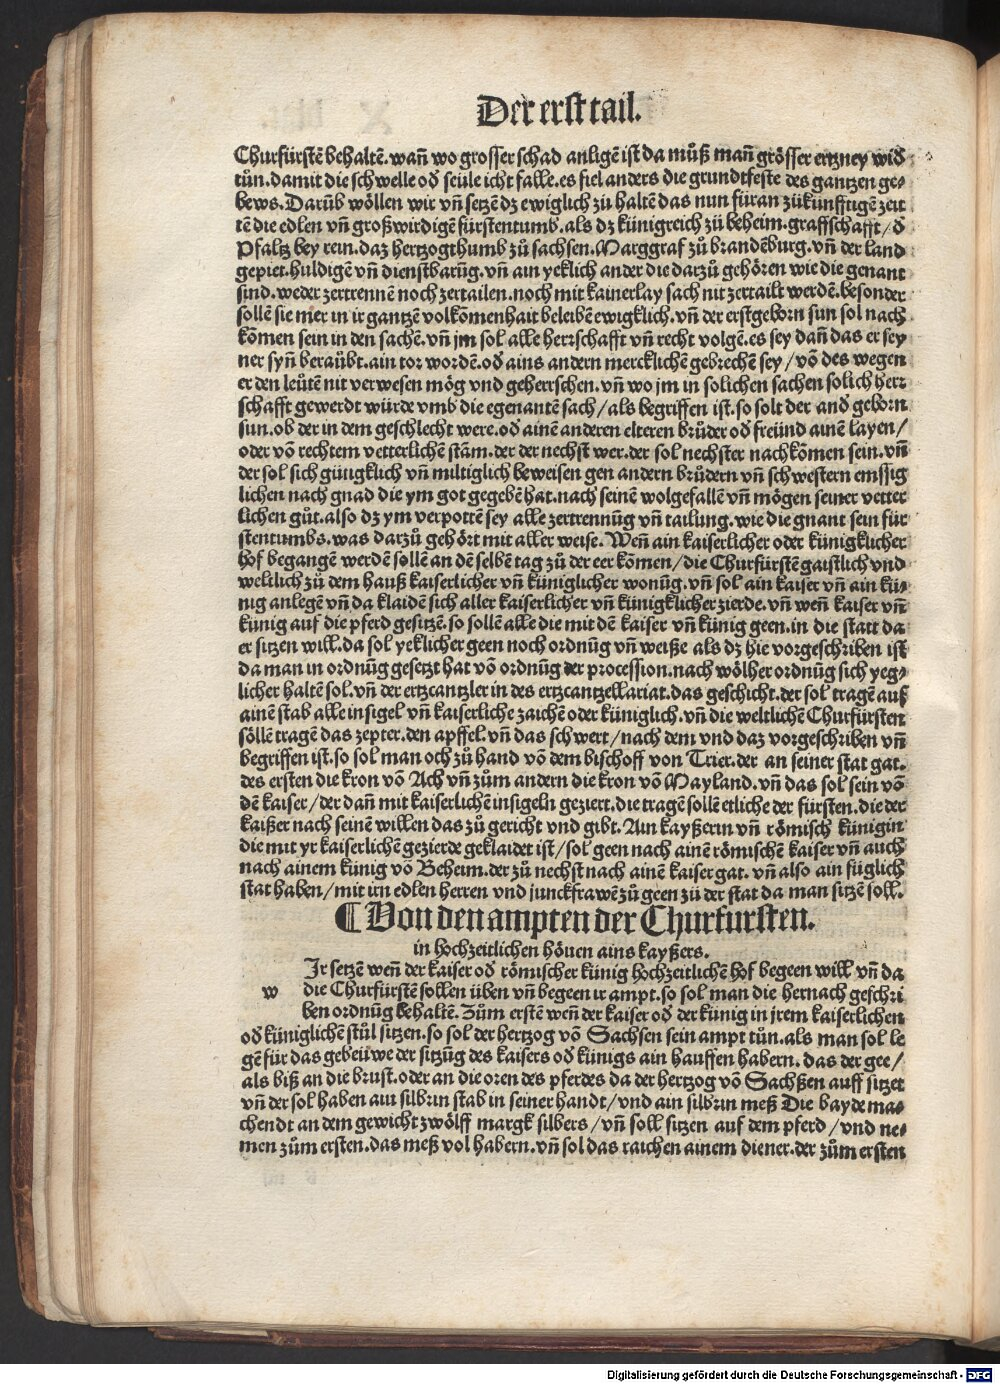 Der erst tail.
Churfürstē behaltē. wañ wo grosser schad anligē ist da můß mañ grösser ertzney wid
tůn. damit die schwelle od seüle icht falle. es fiel anders die grundtfeste des gantzen ge⸗
bews. Darūb wöllen wir vñ setzē dz ewiglich zů haltē das nun füran zůkünfftigē zeit
tē die edlen vñ großwirdigē fürstentumb. als dz künigreich zů beheim. graffschafft / d
Pfaltz bey rein. daz hertzogthumb zů sachsen. Marggraf zů brandēburg. vñ der land
gepiet. huldigē vñ dienstbarūg. vñ ain yeklich ander die darzů gehören wie die genant
sind. weder zertrennē noch zertailen. noch mit kainerlay sach nit zertailt werdē. besonder
sollē sie mer in ir gantzē volkōmenhait beleibē ewigklich. vñ der erstgeborn sun sol nach
kōmen sein in den sachē. vñ jm sol alle herrschafft vñ recht volgē. es sey dañ das er sey
ner syñ beraübt. ain tor wordē. od ains andern mercklichē gebrechē sey / vō des wegen
er den leütē nit verwesen mög vnd geherrschen. vñ wo jm in solichen sachen solich herr
schafft gewerdt würde vmb die egenantē sach / als begriffen ist. so solt der and geborn
sun. ob der in dem geschlecht were. od ainē anderen elteren brůder od freünd ainē layen /
oder vō rechtem vetterlichē stām. der der nechst wer. der sol nechster nachkōmen sein. vñ
der sol sich gütigklich vñ miltiglich beweisen gen andern brůdern vñ schwestern emssig
lichen nach gnad die ym got gegebē hat. nach seinē wolgefallē vñ mögen seiner vetter
lichen gůt. also dz ym verpottē sey alle zertrennūg vñ tailung. wie die gnant sein für
stentumbs. was darzů gehört mit aller weise. Weñ ain kaiserlicher oder künigklicher
hof begangē werdē sollē an dē selbē tag zů der eer kōmen / die Churfürstē gaistlich vnd
weltlich zů dem hauß kaiserlicher vñ küniglicher wonūg. vñ sol ain kaiser vñ ain kü⸗
nig anlegē vñ da klaidē sich aller kaiserlicher vñ künigklicher zierde. vñ weñ kaiser vñ
künig auf die pferd gesitzē. so sollē alle die mit dē kaiser vñ künig geen. in die statt da
er sitzen will. da sol yeklicher geen noch ordnūg vñ weiße als dz hie vorgeschriben ist
da man in ordnūg gesetzt hat vō ordnūg der procession. nach wölher ordnūg sich yeg⸗
licher haltē sol. vñ der ertzcantzler in des ertzcantzellariat. das geschicht. der sol tragē auf
ainē stab alle insigel vñ kaiserliche zaichē oder küniglich. vñ die weltlichē Churfürsten
söllē tragē das zepter. den apffel. vñ das schwert / nach dem vnd daz vorgeschriben vñ
begriffen ist. so sol man och zů hand vō dem bischoff von Trier. der an seiner stat gat.
des ersten die kron vō Ach vñ zům andern die kron vō Mayland. vñ das sol sein vō
dē kaiser / der dañ mit kaiserlichē insigeln geziert. die tragē sollē etliche der fürsten. die der
kaißer nach seinē willen das zů gericht vnd gibt. Ain kayßerin vñ römisch künigin
die mit yr kaiserlichē gezierde geklaidet ist / sol geen nach ainē römischē kaiser vñ auch
nach ainem künig vō Beheim. der zů nechst nach ainē kaiser gat. vñ also ain füglich
stat haben / mit irn edlen herren vnd junckfrawē zů geen zů der stat da man sitzē soll.
¶ Von den ampten der Churfursten.
in hochzeitlichen höuen ains kayßers.
Ir setzē weñ der kaiser od römischer künig hochzeitlichē hof begeen will vñ da
w die Churfürstē sollen üben vñ begeen ir ampt. so sol man die hernach geschri
ben ordnūg behaltē. Zům erstē weñ der kaiser od der künig in jrem kaiserlichen
od küniglichē stůl sitzen. so sol der hertzog vō Sachsen sein ampt tůn. als man sol le
gē für das gebeüwe der sitzūg des kaisers od künigs ain hauffen habern. das der gee /
als biß an die brust. oder an die oren des pferdes da der hertzog vō Sachßen auff sitzet
vñ der sol haben ain silbrin stab in seiner handt / vnd ain silbrin meß Die bayde ma⸗
chendt an dem gewicht zwölff margk silbers / vñ soll sitzen auf dem pferd / vnd ne⸗
men zům ersten. das meß vol habern. vñ sol das raichen ainem diener. der zům ersten
Digitalisierung gefördert durch die Deutsche Forschungsgemeinschaft - DFG